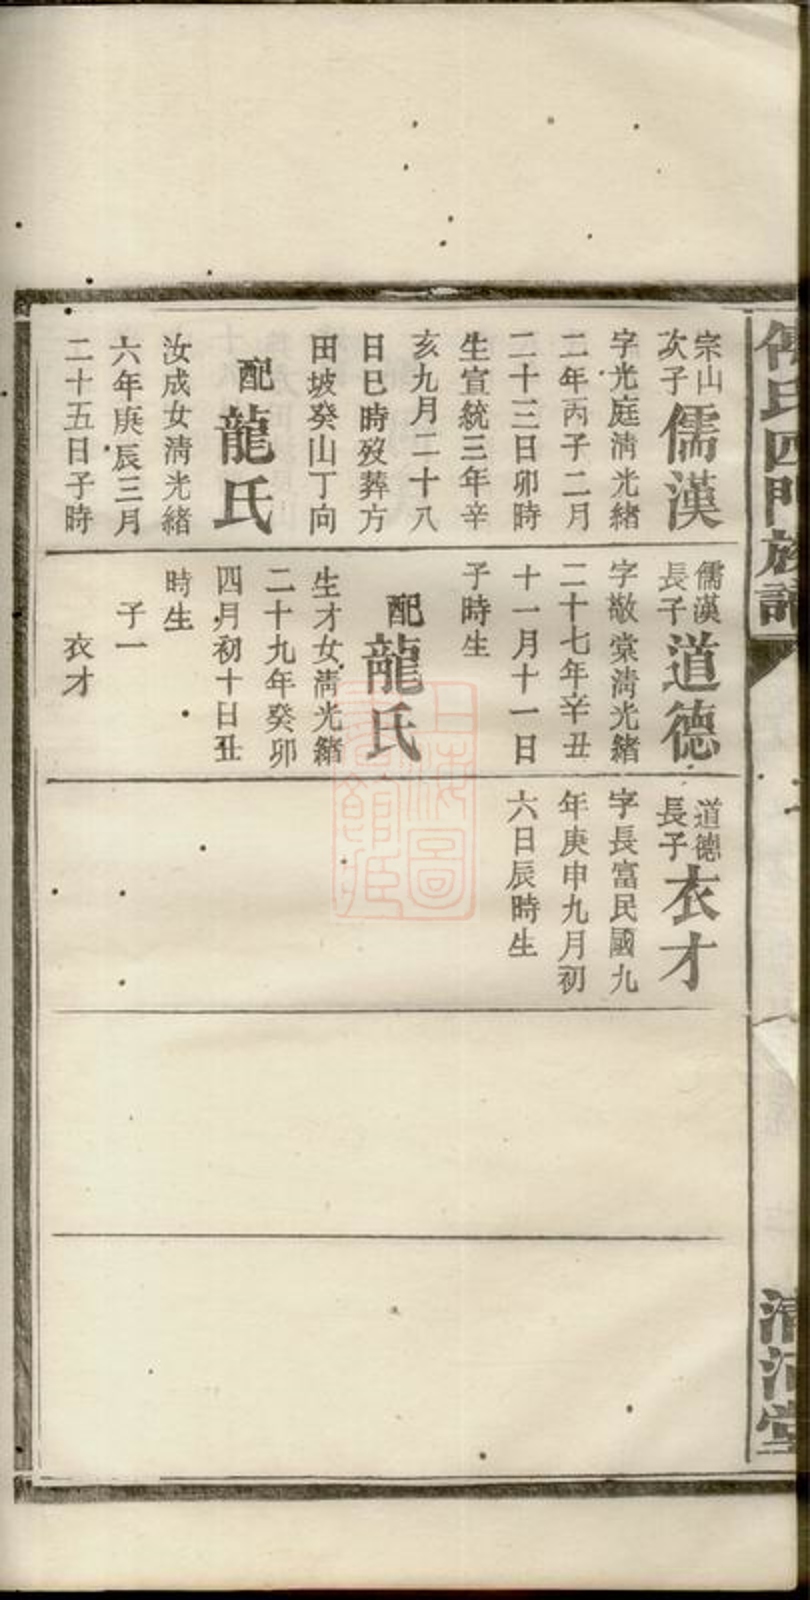 傅氏四門族譜
清河堂
宗山
次子
儒漢
字光庭淸光緒
二年丙子二月
二十三日卯時
生宣統三年辛
亥九月二十八
日巳時歿葬方
田坡癸山丁向
配龍氏
汝成女淸光緒
六年庚辰三月
二十五日子時
儒漢
長子
道德
字敬棠淸光緒
二十七年辛丑
十一月十一日
子時生
配龍氏
生才女淸光緒
二十九年癸卯
四月初十日丑
時生
子一
衣才
道德
長子
衣才
字長富民國九
年庚申九月初
六日辰時生
上海圖
書館藏